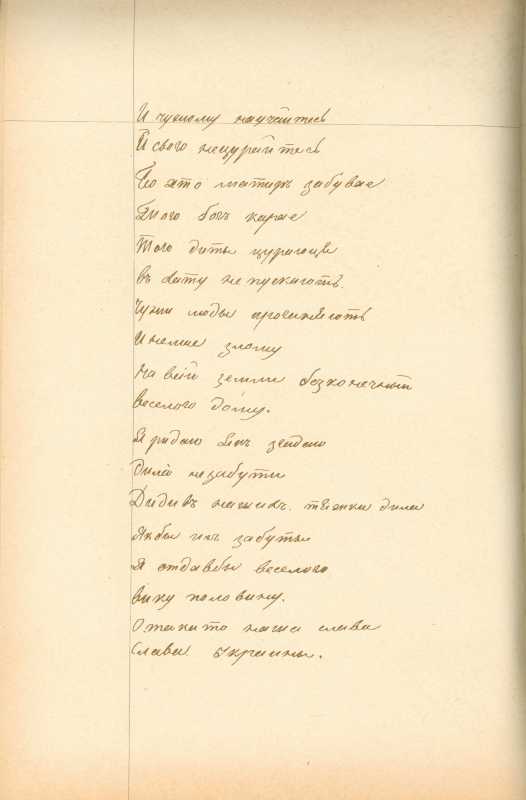 И чужому научайтесь
Й свого нецурайтесь
Бо хто матирь забувае
Того богъ карае
Того диты цураюця
въ хату не пускають.
Чужи люды проганяють
И немае злому
На всій земли безконечній
Веселого дому.
Я рыдаю якъ згадаю
Дила незабути
Дидивъ нашихъ. тяжки дила
Якбы ихъ забуты
Я отдавбы веселого
Вику половину.
Отака то наша слава
Слава Украины.